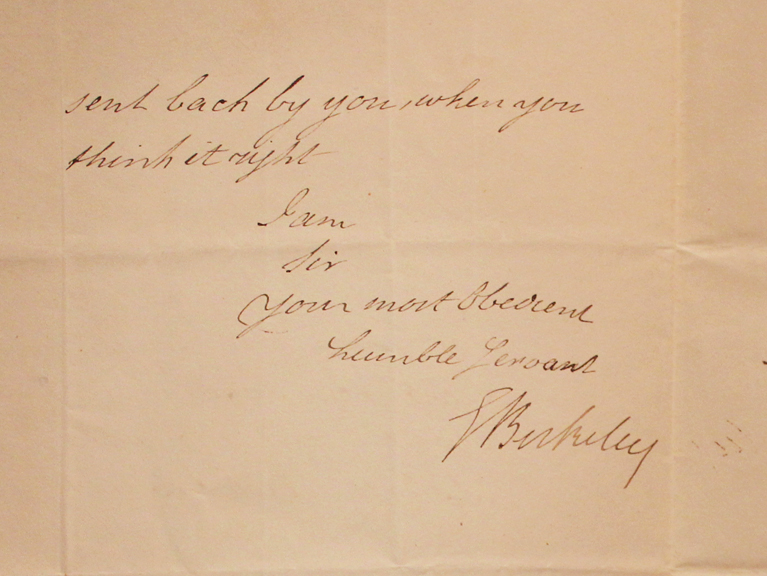 sent back by you, when you
think it right
I am
Sir
Your most Obedient
humble Servant
G Berkeley